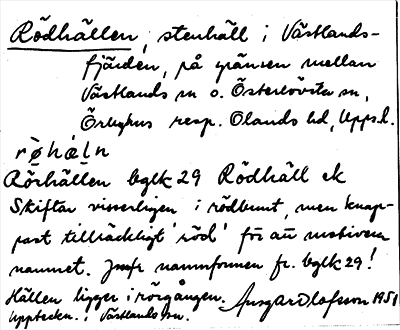 Rödhällen, stenhäll i Västlands-
fjärden, på gränsen mellan
Västlands sn o. Österlövsta sn,
Örbyhus resp. Olands hd, Upps. l.
rø̀hæ̀ln
Rörhällen bglk 29 Rödhäll ek
Skiftar visserligen i rödbrunt, men knap-
past tillräckligt 'röd' för att motivera
namnet. Jmfr namnformen fr. bglk 29!
Hällen ligger i rörgången. Ansgar Olofsson 1951
Uppteckn. i Västlands sn.